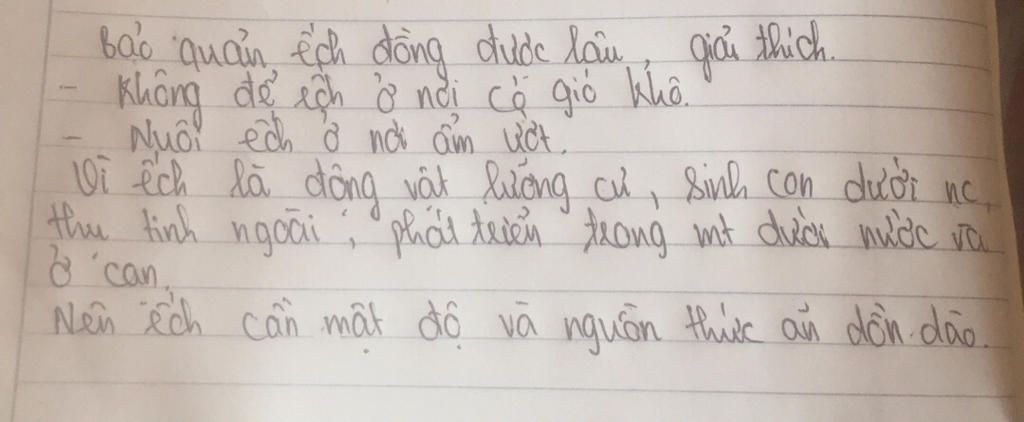 Bảo quản ếch đồng được lâu, giải thích.
- Không để ếch ở nơi có gió khô.
- Nuôi ếch ở nơi ẩm ướt.
Vì ếch là động vật lưỡng cư, sinh con dưới nc,
thụ tinh ngoài, phát triển trong mt dưới nước và
ở cạn.
Nên ếch cần mật độ và nguồn thức ăn dồn dào.